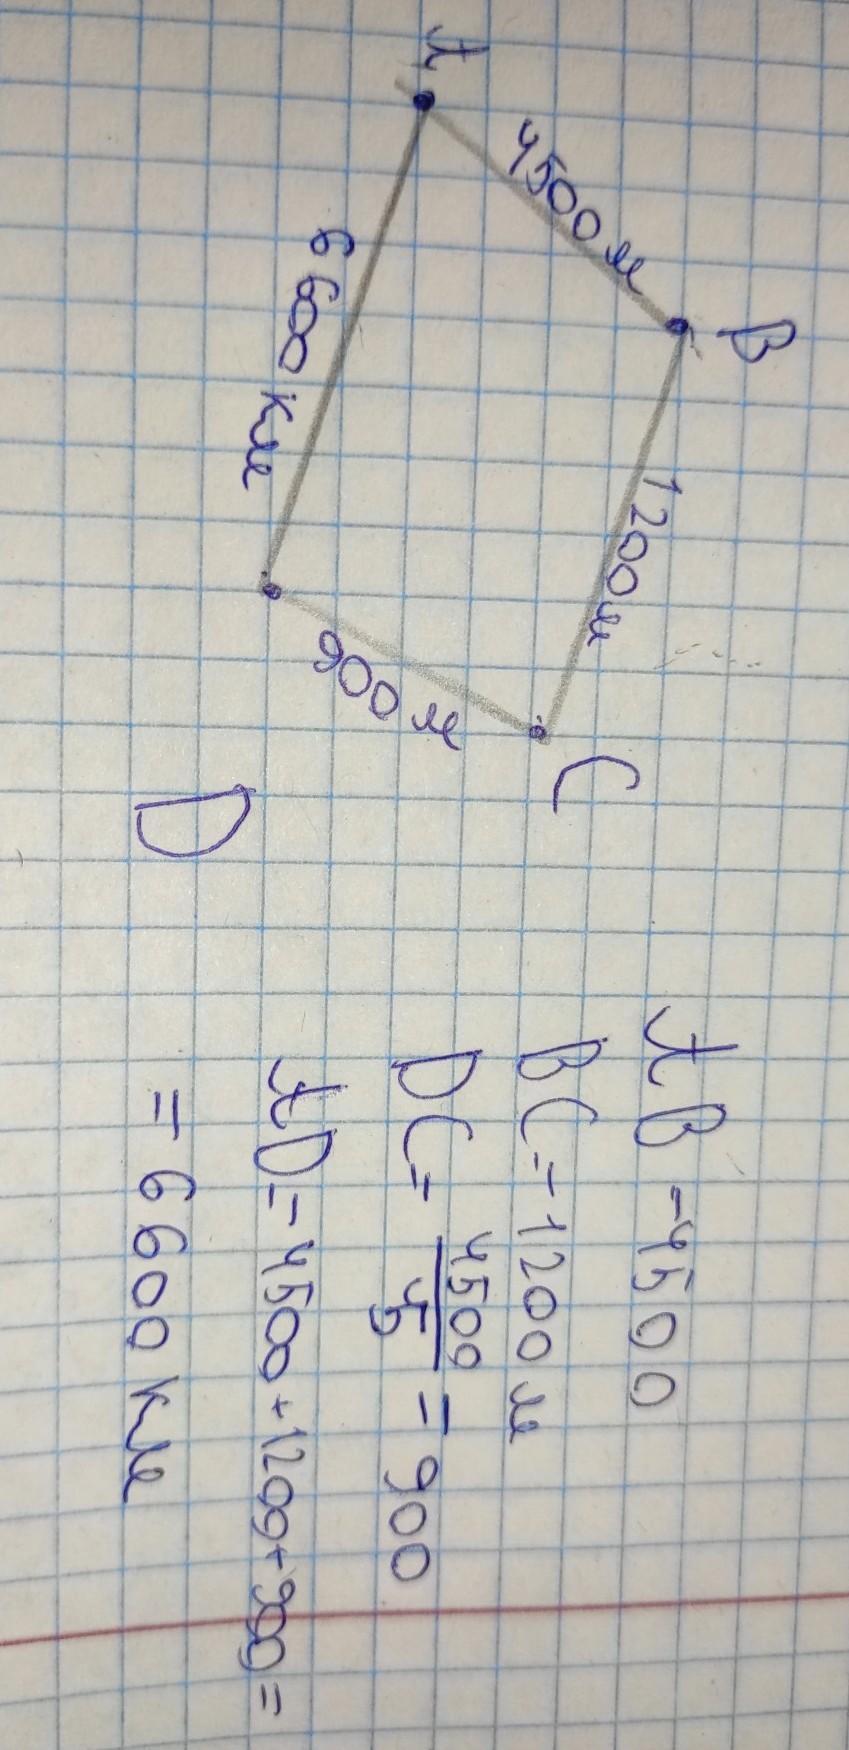 A
B
C
D
4500 м
1200 м
900 м
6600 км
AB - 4500
BC = 1200 м
DC = 4500/5 = 900
AD = 4500 + 1200 + 900 =
= 6600 км